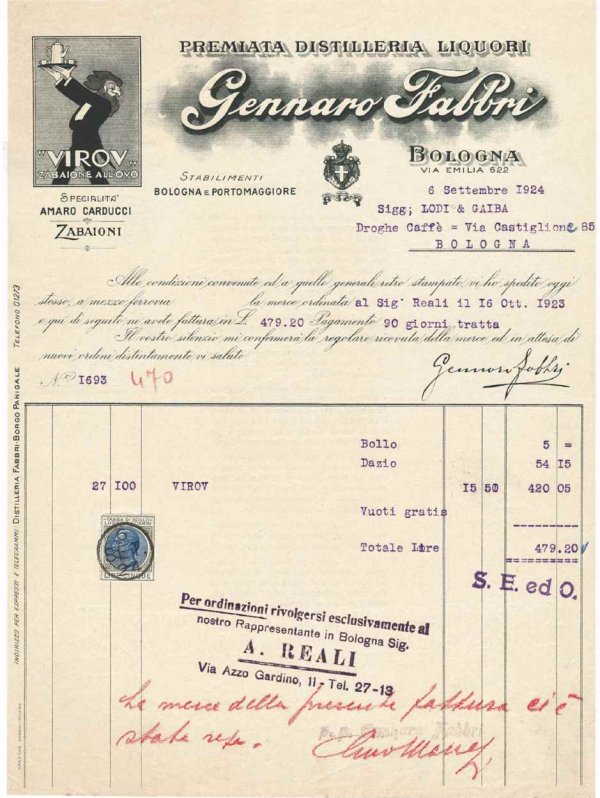 PREMIATA DISTILLERIA LIQUORI
Gennaro Fabbri
BOLOGNA
VIA EMILIA 622
"VIROV"
ZABAIONE ALL'OVO
SPECIALITÀ
AMARO CARDUCCI
ZABAIONI
STABILIMENTI
BOLOGNA E PORTOMAGGIORE
6 Settembre I924
Sigg; LODI & GAIBA
Droghe Caffè = Via Castiglione 85
BOLOGNA
Alle condizioni convenute ed a quelle generali retro stampate, vi ho spedito oggi
stesso, a mezzo ferrovia la merce ordinata al Sig' Reali il I6 Ott. I923
e qui di seguito ne avete fattura in L. 479.20 Pagamento 90 giorni tratta
Il vostro silenzio mi confermerà la regolare ricevuta della merce ed in attesa di
nuovi ordini distintamente vi saluto
Gennaro Fabbri
N.º I693 470
Bollo 5 =
Dazio 54 I5
27 I00 VIROV I5 50 420 05
Vuoti gratis
Totale Lire 479.20
S. E. ed O.
Per ordinazioni rivolgersi esclusivamente al
nostro Rappresentante in Bologna Sig.
A. REALI
Via Azzo Gardino, 11 - Tel. 27-13
La merce della presente fattura ci è
stata resa.
p. p. Gennaro Fabbri
INDIRIZZO PER ESPRESSI E TELEGRAMMI: DISTILLERIA FABBRI BORGO PANIGALE TELEFONO 012/3